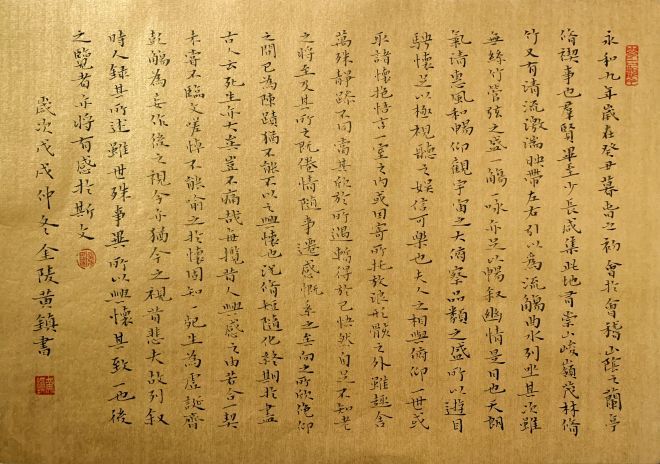 永和九年歲在癸丑暮春之初會於會稽山陰之蘭亭
脩禊事也羣賢畢至少長咸集此地有崇山峻嶺茂林脩
竹又有清流激湍映帶左右引以為流觴曲水列坐其次雖
無絲竹管弦之盛一觴一詠亦足以暢叙幽情是日也天朗
氣清惠風和暢仰觀宇宙之大俯察品類之盛所以遊目
騁懷足以極視聽之娛信可樂也夫人之相與俯仰一世或
取諸懷抱悟言一室之內或因寄所托放浪形骸之外雖趣舍
萬殊靜躁不同當其欣於所遇暫得於己怏然自足不知老
之將至及其所之既倦情隨事遷感慨係之矣向之所欣俛仰
之間已為陳蹟猶不能不以之興懷也況脩短隨化終期於盡
古人云死生亦大矣豈不痛哉每攬昔人興感之由若合一契
未嘗不臨文嗟悼不能喻之於懷固知一死生為虛誕齊
彭殤為妄作後之視今亦猶今之視昔悲夫故列叙
時人録其所述雖世殊事異所以興懷其致一也後
之覽者亦將有感於斯文
歲次戊戌仲冬金陵黃鎮書